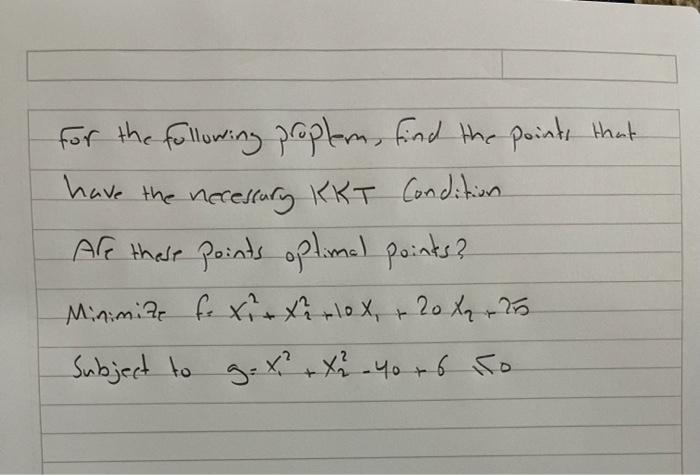 For the following proplem, find the points that
have the necessary KKT Condition
Are these points optimal points?
Minimize f= x₁² + x₂² + 10 x₁ + 20 x₂ + 25
Subject to g= x₁² + x₂² - 40 + 6 ≤ 0